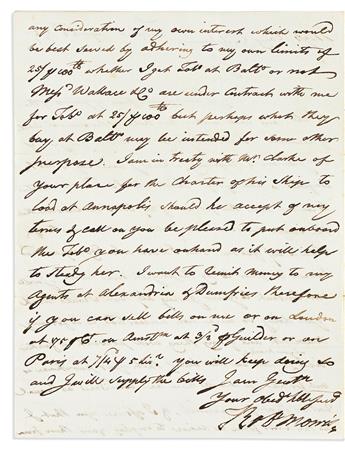 any consideration of my own interest which would
be best served by adhering to my own limits of
25/ ⅌ 100ᵗʰ whether I get Tobᵒ at Balᵗᵒ or not
Messʳˢ Wallace & Cᵒ are under Contract with me
for Tobᵒ at 25/ ⅌ 100ᵗʰ but perhaps what they
buy at Balᵗᵒ may be intended for some other
purpose. I am in treaty with Mʳ Clarke of
your place for the Charter of his Ship to
load at Annapolis should he accept of my
terms & call on you be pleased to put onboard
the Tobᵒ you have onhand as it will help
to steady her. I want to remit money to my
Agents at Alexandria & Dumfries therefore
if you can sell bills on me or on London
at on Amstᵐ at 3/2 ⅌ Guilder or on
Paris at 7/4 ⅌ 5 livˢ you will keep doing so
and I will supply the bills I am Gentⁿ
Your Obedᵗ
Robᵗ Morris